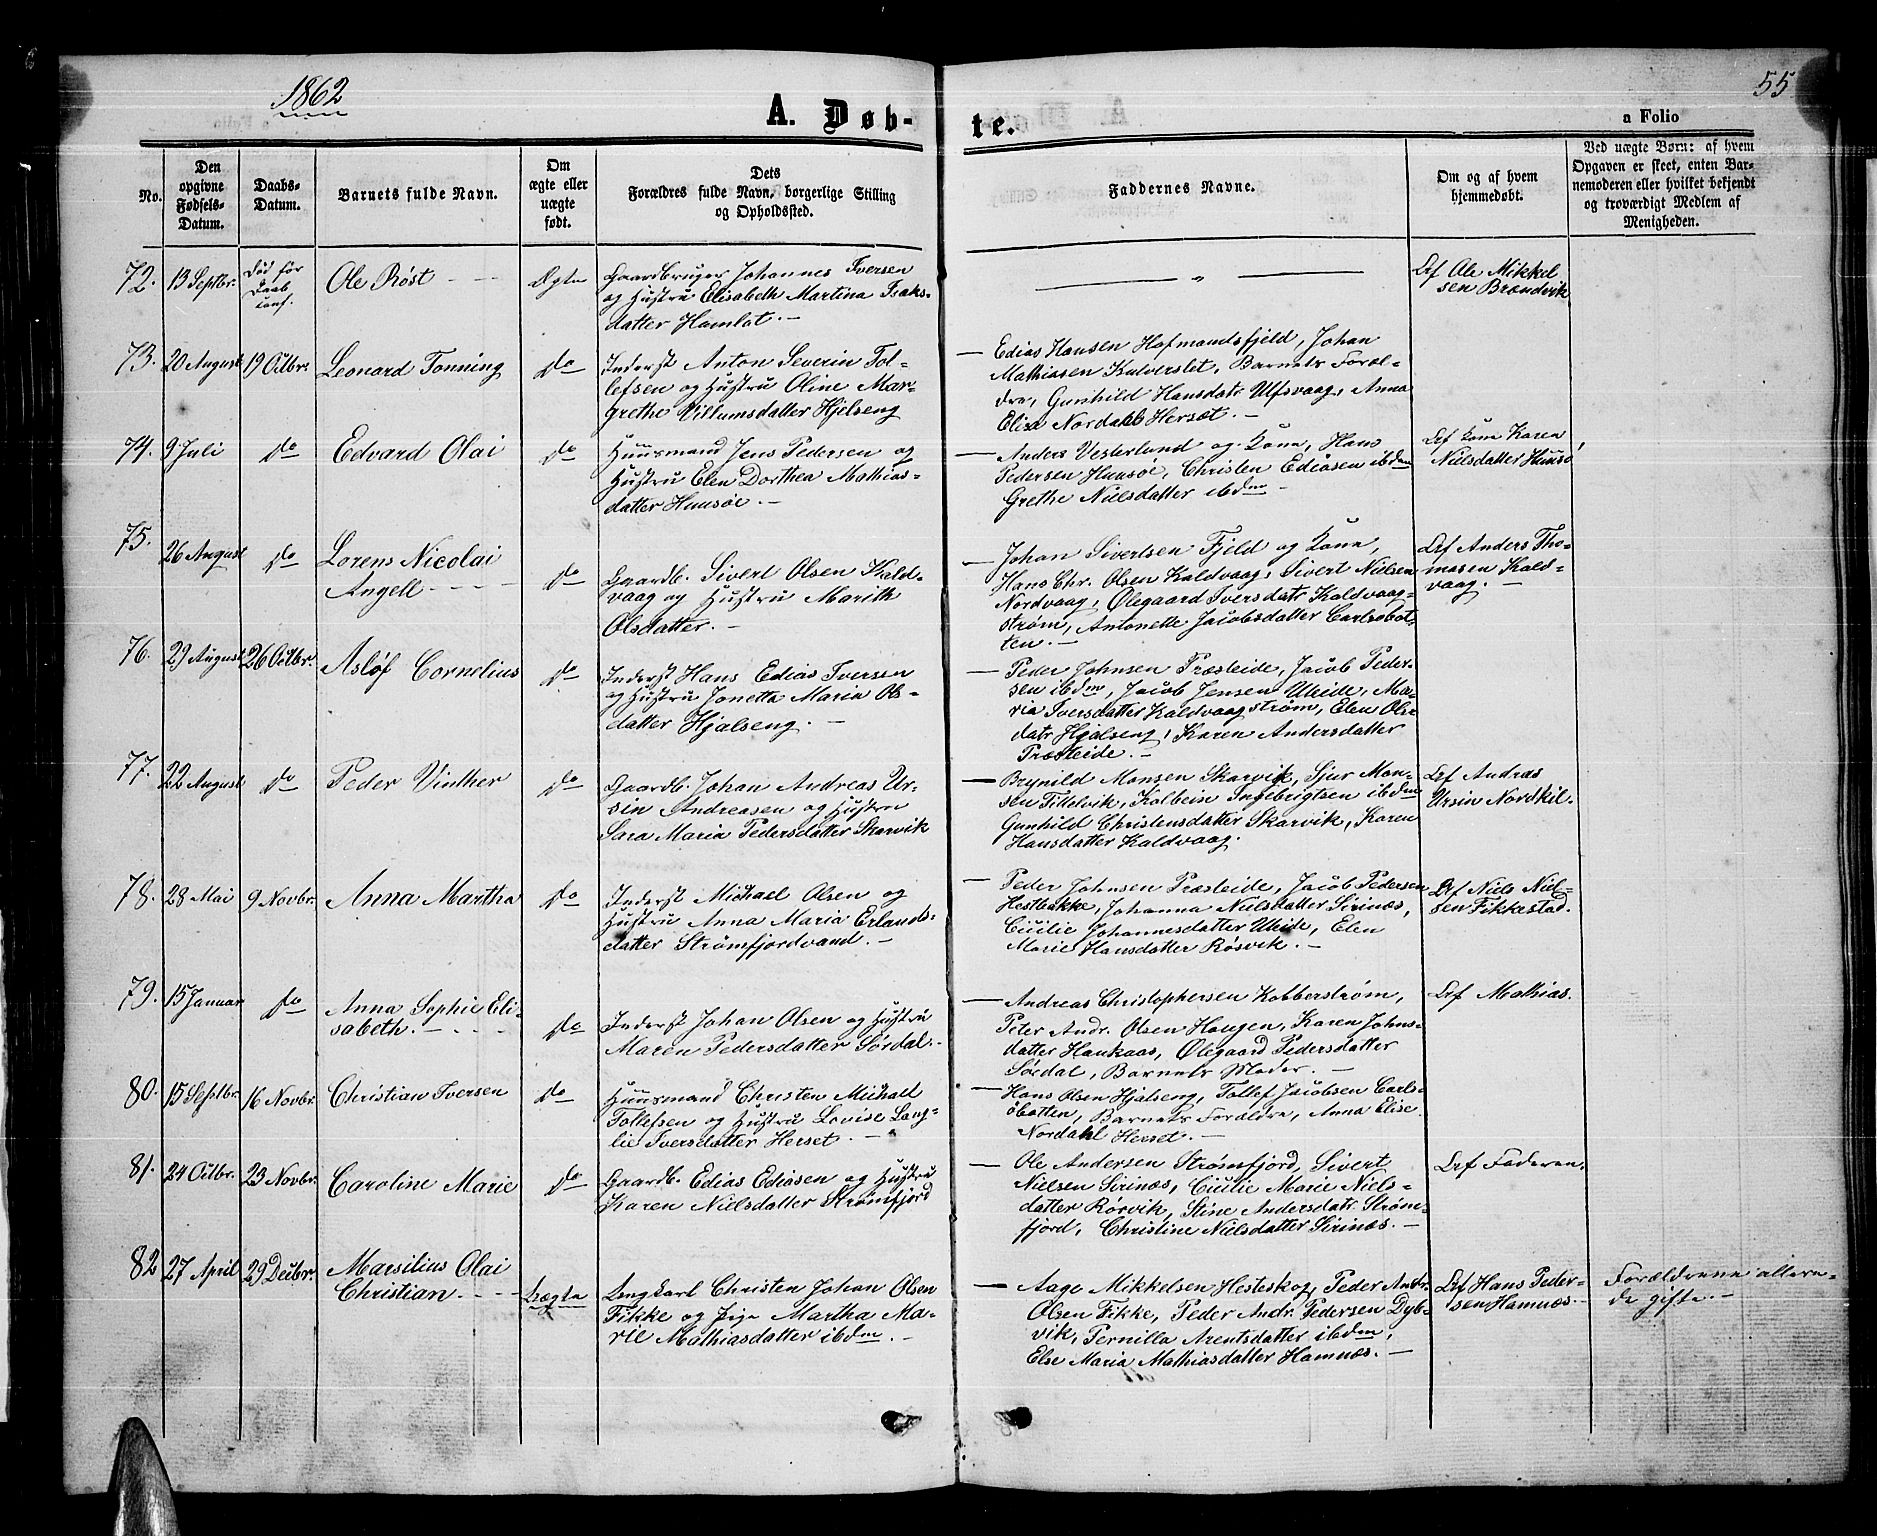 1862
55
A. Døb-
te.
a Folio
No.
Den
opgivne
Fødsels-
Datum.
Daabs-
Datum.
Barnets fulde Navn.
Om
ægte eller
uægte
født.
Dets
Forældres fulde Navn, borgerlige Stilling
og Opholdssted.
Faddernes Navne.
Om og af hvem
hjemmedøbt.
Ved uægte Børn: af hvem
Opgaven er skeet, enten Bar-
nemoderen eller hvilket bekjendt
og troværdigt Medlem af
Menigheden.
72. 13 Septbr.
Død før
Daab
conf.
Ole Röst
Ægte
Gaardbruger Johannes Iversen
og Hustru Elisabeth Martina Isaks-
datter Hamlot.
"
Ole Mikkel
sen Brændvik
73. 20 August 19 Octbr. Leonard Tonning do
Inderst Anton Severin Tol-
lefsen og Hustru Oline Mar-
grethe Villumsdatter Hjelseng
— Edias Hansen Hofmandsfjeld, Johan
Mathiassen Kalverslet, Barnets Foræl-
dre, Gunhild Hansdatr Ulfsvaag, Anna
Elisa Nordahl Hersæt.
74. 9 Juli do Edvard Olai do
Huusmand Jens Pedersen og
Hustru Elen Dorthea Mathias-
datter Huusöe.
— Anders Vesterlund og Kone, Hans
Pedersen Huusöi, Christen Ediasen ibdm
Grethe Nielsdatter ibdm
Karen
Nielsdatter Huusö
75. 26 August do Lorens Nicolai
Angell
do
Gaardb. Sivert Olsen Kald-
vaag og Hustru Marith
Olsdatter.
— Johan Sivertsen Fjeld og Kone,
Hans Chr. Olsen Kaldvaag, Sivert Nielsen
Nordvaag, Ølegaard Iversdatr Kaldvaag-
strøm, Antonette Jacobsdatter Carlsobot-
ten.
Anders Tho-
masen Kald-
vaag.
76. 29 August 26 Octbr. Asløf Cornelius do
Inderst Hans Edias Iversen
og Hustru Jonetta Maria Ols-
datter Hjalseng.
— Peder Johnsen Præsteide, Jacob Peder-
sen ibdm, Jacob Jensen Uleide, Ma-
ria Iversdatter Kaldvaagstrøm, Elen Ols-
datr Hjalseng, Karen Andersdatter
Præsteide.
77. 22 August do Peder Vinther do
Gaardb. Johan Andreas Ur-
sin Andreasen og Hustru
Sara Maria Pedersdatter Skarvik
— Brynild Monsen Skarvik, Sjur Mon-
sen Tittelvik, Kolbein Ingebrigtsen ibdm
Gunhild Christensdatter Skarvik, Karen
Hansdatter Kaldvaag.
Andras
Ursin Nordkil.
78. 28 Mai 9 Novbr. Anna Martha do
Inderst Michael Olsen og
Hustru Anna Maria Erlands-
datter Strømfjordvand.
— Peder Johnsen Præsteide, Jacob Pedersen
Hestbakke, Johanna Nielsdatter Sirinæs,
Cicilie Johannesdatter Uleide, Elen
Marie Hansdatter Røsvik.
Niels Niel-
sen Fikkestad.
79. 15 Januar do Anna Sophie Eli-
sabeth.
do
Inderst Johan Olsen og Hustru
Maren Pedersdatter Sørdal.
— Andreas Christophersen Kobberstrøm,
Peter Andr. Olsen Haugen, Karen Johns-
datter Haukaas, Ølegaard Pedersdatter
Sördal, Barnets Moder.
Mathias.
80. 15 Septbr. 16 Novbr. Christian Iversen do
Huusmand Christen Michael
Tollefsen og Hustru Lovise Lang-
lie Iversdatter Herset.
— Hans Olsen Hjalseng, Tollef Jacobsen Carls-
öbotten, Barnets Forældre, Anna Elise
Nordahl Herset.
81. 24 Octbr. 23 Novbr. Caroline Marie do
Gaardb. Edias Ediasen og Hustru
Karen Nielsdatter Strømfjord
— Ole Andersen Strømsfjord, Sivert
Nielsen Sirinæs, Cicilie Marie Niels-
datter Rörvik, Stine Andersdatr Strøm-
fjord, Christine Nielsdatter Sirinæs.
Faderen.
82 27 April 29 Decbr. Marsilius Olai
Christian
Uægte
Ungkarl Christen Johan Olsen
Fikke og Pige Martha Ma-
rie Mathiasdatter ibdm.
— Aage Mikkelsen Hesteskog, Peder Andr.
Olsen Fikke, Peder Andr. Pedersen Dyb-
vik, Pernilla Arentsdatter ibdm,
Else Maria Mathiasdatter Hamnæs.
Hans Peder-
sen Hamnæs.
Forældrene allere-
de gifte.